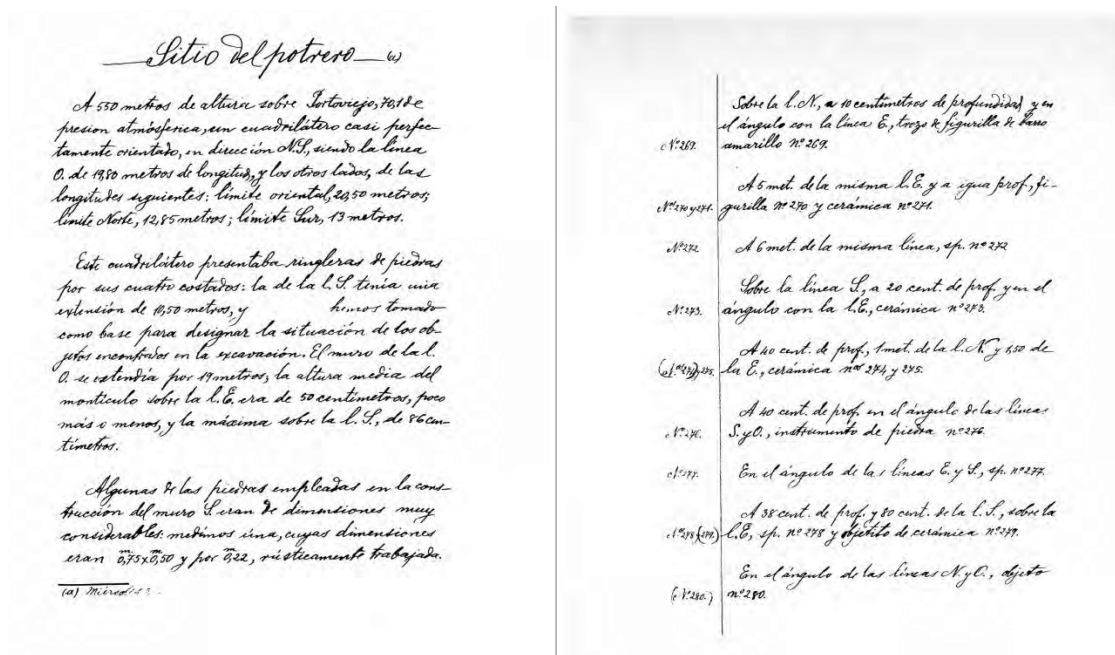 Sitio del potrero (a)
A 550 metros de altura sobre Portoviejo, 70,1 de
presion atmósferica, un cuadrilátero casi perfec-
tamente orientado, en dirección N.S., siendo la linea
O. de 19,80 metros de longitud, y los otros lados, de las
longitudes siguientes: límite oriental, 20,50 metros;
límite Norte, 12,85 metros; límite Sur, 13 metros.
Este cuadrilátero presentaba ringleras de piedras
por sus cuatro costados: la de la l. S. tenía una
extensión de 10,50 metros, y hemos tomado
como base para designar la situación de los ob-
jetos encontrados en la excavación. El muro de la l.
O. se extendía por 19 metros, la altura media del
montículo sobre la l. E. era de 50 centímetros, poco
más o menos, y la máxima sobre la l. S., de 86 cen-
tímetros.
Algunas de las piedras empleadas en la cons-
trucción del muro S. eran de dimensiones muy
considerables: medimos una, cuyas dimensiones
eran 0,m75 x 0,m50 y por 0,m22, rústicamente trabajada.
(a) Miércoles
Sobre la l. N., a 10 centimetros de profundidad y en
el ángulo con la línea E., trozo de figurilla de barro
Nº 269. amarillo nº 269.
A 5 met. de la misma l. E. y a igua prof., fi-
Nos 270 y 271. gurilla nº 270 y cerámica nº 271.
Nº 272. A 6 met. de la misma línea, sp. nº 272
Sobre la línea S., a 20 cent. de prof. y en el
Nº 273. ángulo con la l. E., cerámica nº 273.
A 40 cent. de prof., 1 met. de la l. N. y 1,50 de
(Nos 274) y 275. la E., cerámica nos 274 y 275.
A 40 cent. de prof. en el ángulo de las líneas
Nº 276. S. y O., instrumento de piedra nº 276.
Nº 277. En el ángulo de las líneas E. y S., sp. nº 277.
A 38 cent. de prof. y 80 cent. de la l. S., sobre la
Nos 278 y (279.) l. E., sp. nº 278 y objetito de cerámica nº 279.
En el ángulo de las líneas N. y O., objeto
(Nº 280.) nº 280.